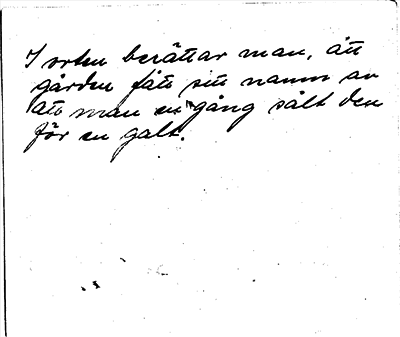 I orten berättar man, att
gården fått sitt namn av
att man en gång sålt den
för en galt.